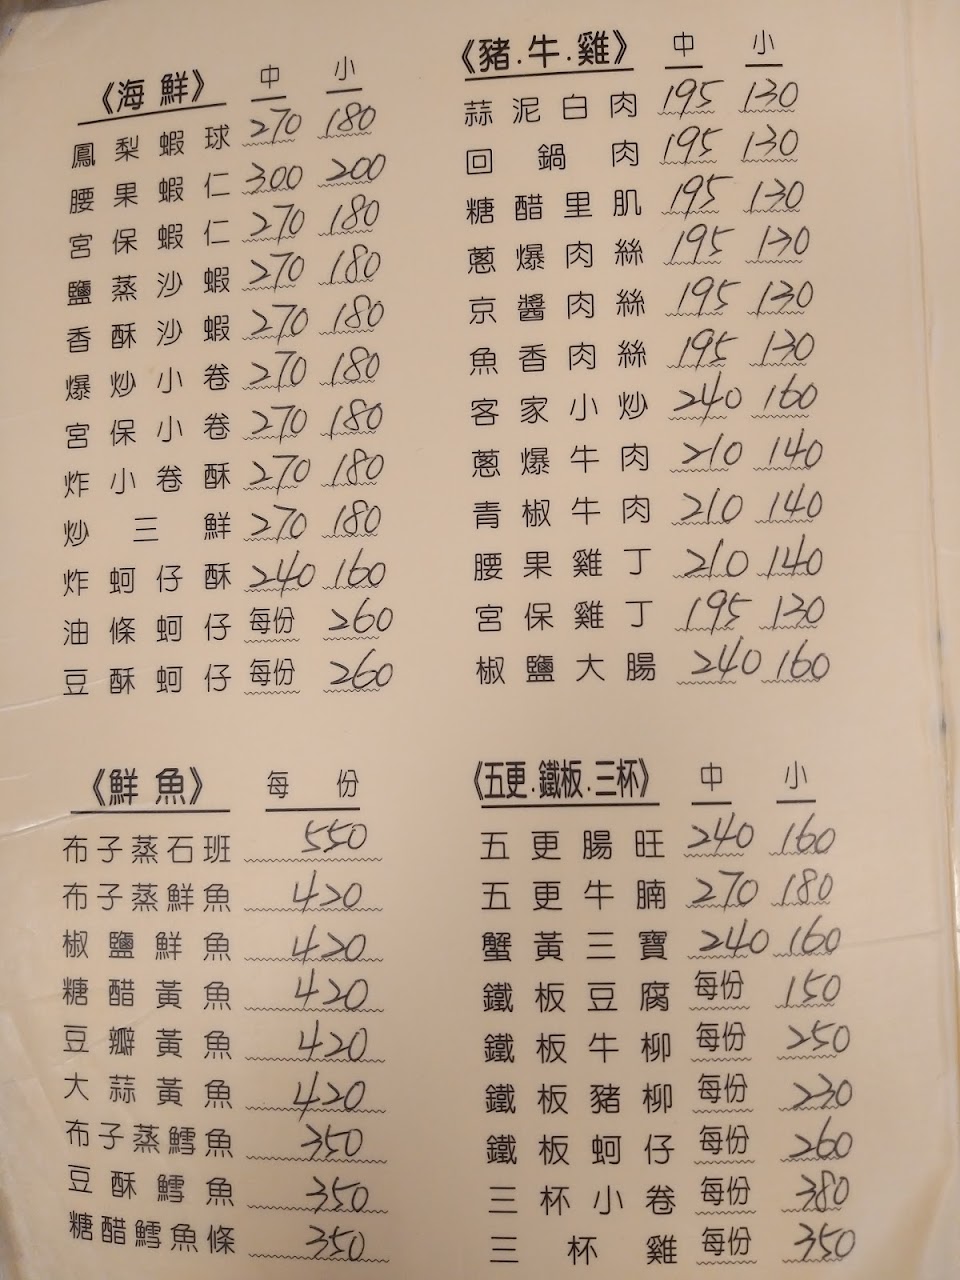 《海鮮》 中 小
鳳梨蝦球 270 180
腰果蝦仁 300 200
宮保蝦仁 270 180
鹽蒸沙蝦 270 180
香酥沙蝦 270 180
爆炒小卷 270 180
宮保小卷 270 180
炸小卷酥 270 180
炒三鮮 270 180
炸蚵仔酥 240 160
油條蚵仔 每份 260
豆酥蚵仔 每份 260
《豬.牛.雞》 中 小
蒜泥白肉 195 130
回鍋肉 195 130
糖醋里肌 195 130
蔥爆肉絲 195 130
京醬肉絲 195 130
魚香肉絲 195 130
客家小炒 240 160
蔥爆牛肉 210 140
青椒牛肉 210 140
腰果雞丁 210 140
宮保雞丁 195 130
椒鹽大腸 240 160
《鮮魚》 每份
布子蒸石班 550
布子蒸鮮魚 420
椒鹽鮮魚 420
糖醋黃魚 420
豆瓣黃魚 420
大蒜黃魚 420
布子蒸鱈魚 350
豆酥鱈魚 350
糖醋鱈魚條 350
《五更.鐵板.三杯》 中 小
五更腸旺 240 160
五更牛腩 270 180
蟹黃三寶 240 160
鐵板豆腐 每份 150
鐵板牛柳 每份 250
鐵板豬柳 每份 230
鐵板蚵仔 每份 260
三杯小卷 每份 380
三杯雞 每份 350